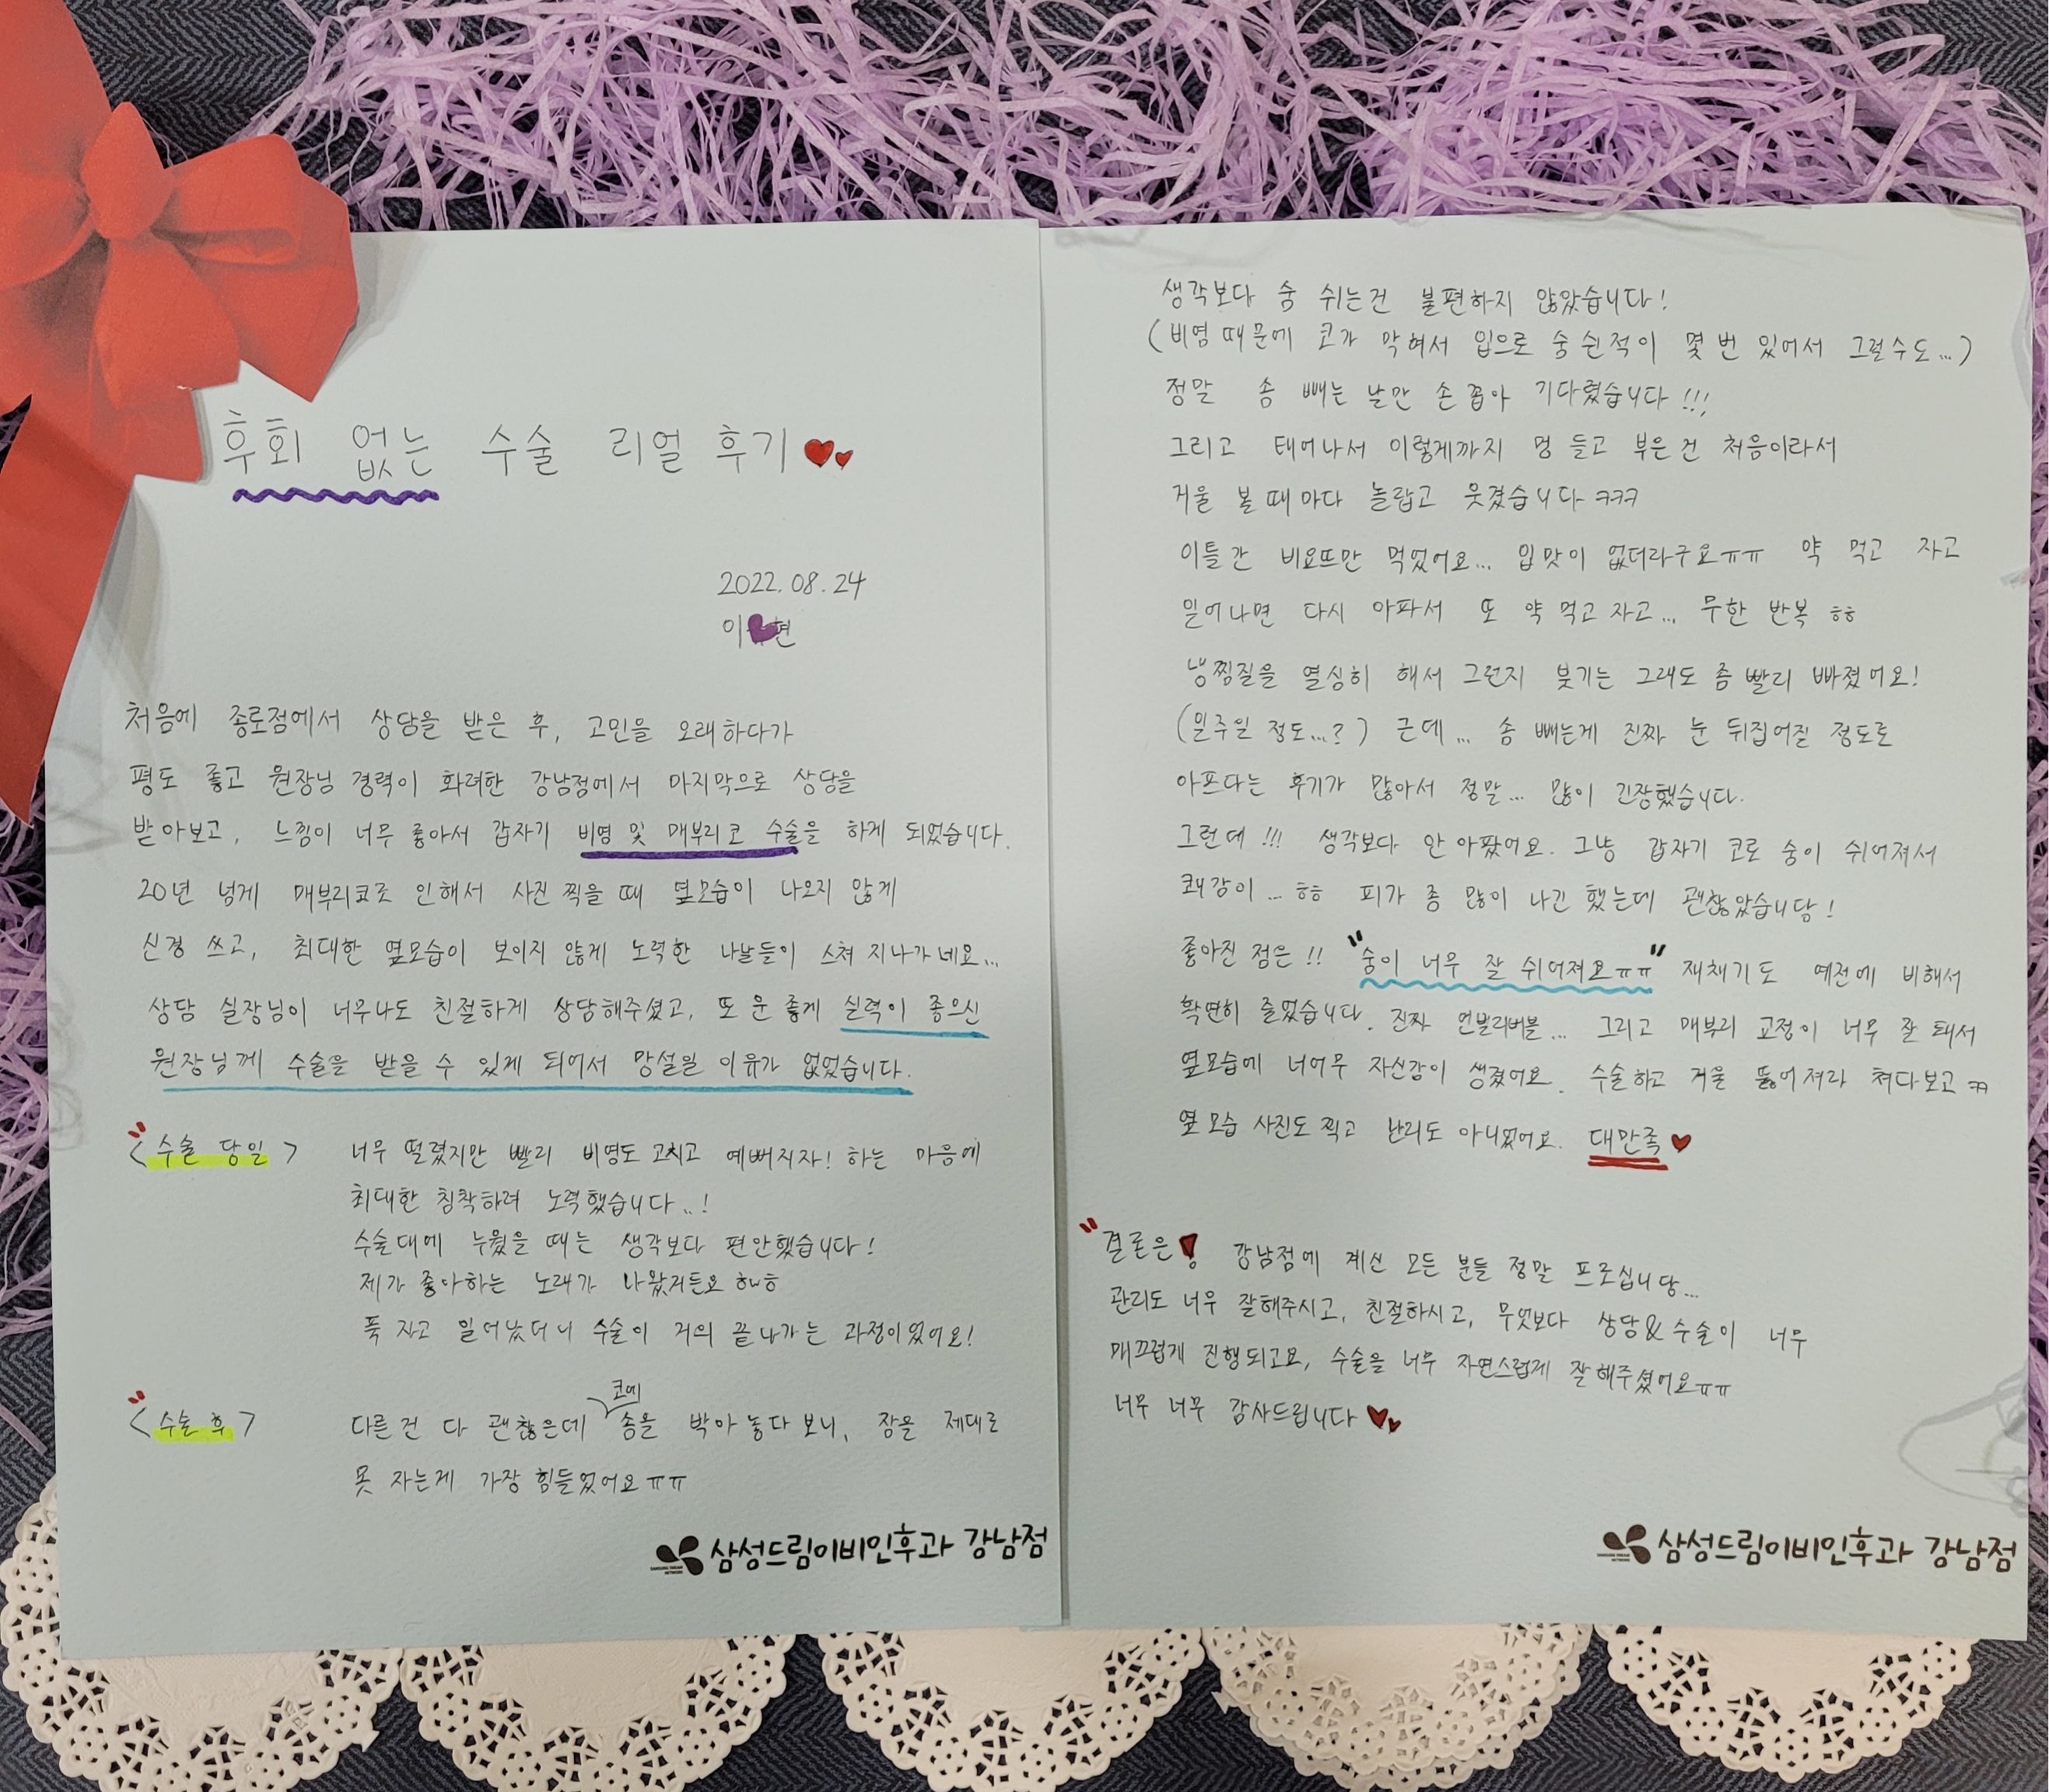 후회 없는 수술 리얼 후기
2022.08.24
이 현
처음에 종로점에서 상담을 받은 후, 고민을 오래하다가
평도 좋고 원장님 경력이 화려한 강남점에서 마지막으로 상담을
받아보고, 느낌이 너무 좋아서 갑자기 비염 및 매부리코 수술을 하게 되었습니다.
20년 넘게 매부리코로 인해서 사진 찍을 때 옆모습이 나오지 않게
신경 쓰고, 최대한 옆모습이 보이지 않게 노력한 나날들이 스쳐 지나가네요...
상담 실장님이 너무나도 친절하게 상담해주셨고, 또 운 좋게 실력이 좋으신
원장님께 수술을 받을 수 있게 되어서 망설일 이유가 없었습니다.
<수술 당일> 너무 떨렸지만 빨리 비염도 고치고 예뻐지자! 하는 마음에
최대한 침착하려 노력했습니다..!
수술대에 누웠을 때는 생각보다 편안했습니다!
제가 좋아하는 노래가 나왔거든요 ㅎㅅㅎ
푹 자고 일어났더니 수술이 거의 끝나가는 과정이었어요!
<수술 후> 다른건 다 괜찮은데 코에 솜을 박아 놓다보니, 잠을 제대로
못 자는게 가장 힘들었어요ㅠㅠ
삼성드림이비인후과 강남점
생각보다 숨 쉬는건 불편하지 않았습니다!
(비염 때문에 코가 막혀서 입으로 숨 쉰적이 몇 번 있어서 그럴수도...)
정말 솜 빼는 날만 손 꼽아 기다렸습니다!!!
그리고 태어나서 이렇게까지 멍 들고 부은 건 처음이라서
거울 볼 때마다 놀랍고 웃겼습니다 ㅋㅋㅋ
이틀간 비요뜨만 먹었어요... 입맛이 없더라구요ㅠㅠ 약 먹고 자고
일어나면 다시 아파서 또 약 먹고 자고... 무한 반복 ㅎㅎ
냉찜질을 열심히 해서 그런지 붓기는 그래도 좀 빨리 빠졌어요!
(일주일 정도...?) 근데... 솜 빼는게 진짜 눈 뒤집어질 정도로
아프다는 후기가 많아서 정말... 많이 긴장했습니다.
그런데!!! 생각보다 안 아팠어요. 그냥 갑자기 코로 숨이 쉬어져서
쾌감이...ㅎㅎ 피가 좀 많이 나긴 했는데 괜찮았습니당!
좋아진 점은!! "숨이 너무 잘 쉬어져요ㅠㅠ" 재채기도 예전에 비해서
확연히 줄었습니다. 진짜 언빌리버블... 그리고 매부리 교정이 너무 잘 돼서
옆모습에 너어무 자신감이 생겼어요. 수술하고 거울 뚫어져라 쳐다보고ㅋㅋ
옆모습 사진도 찍고 난리도 아니었어요. 대만족
결론은! 강남점에 계신 모든 분들 정말 프로십니당...
관리도 너무 잘해주시고, 친절하시고, 무엇보다 상담&수술이 너무
매끄럽게 진행되고요, 수술을 너무 자연스럽게 잘 해주셨어요ㅠㅠ
너무 너무 감사드립니다
삼성드림이비인후과 강남점